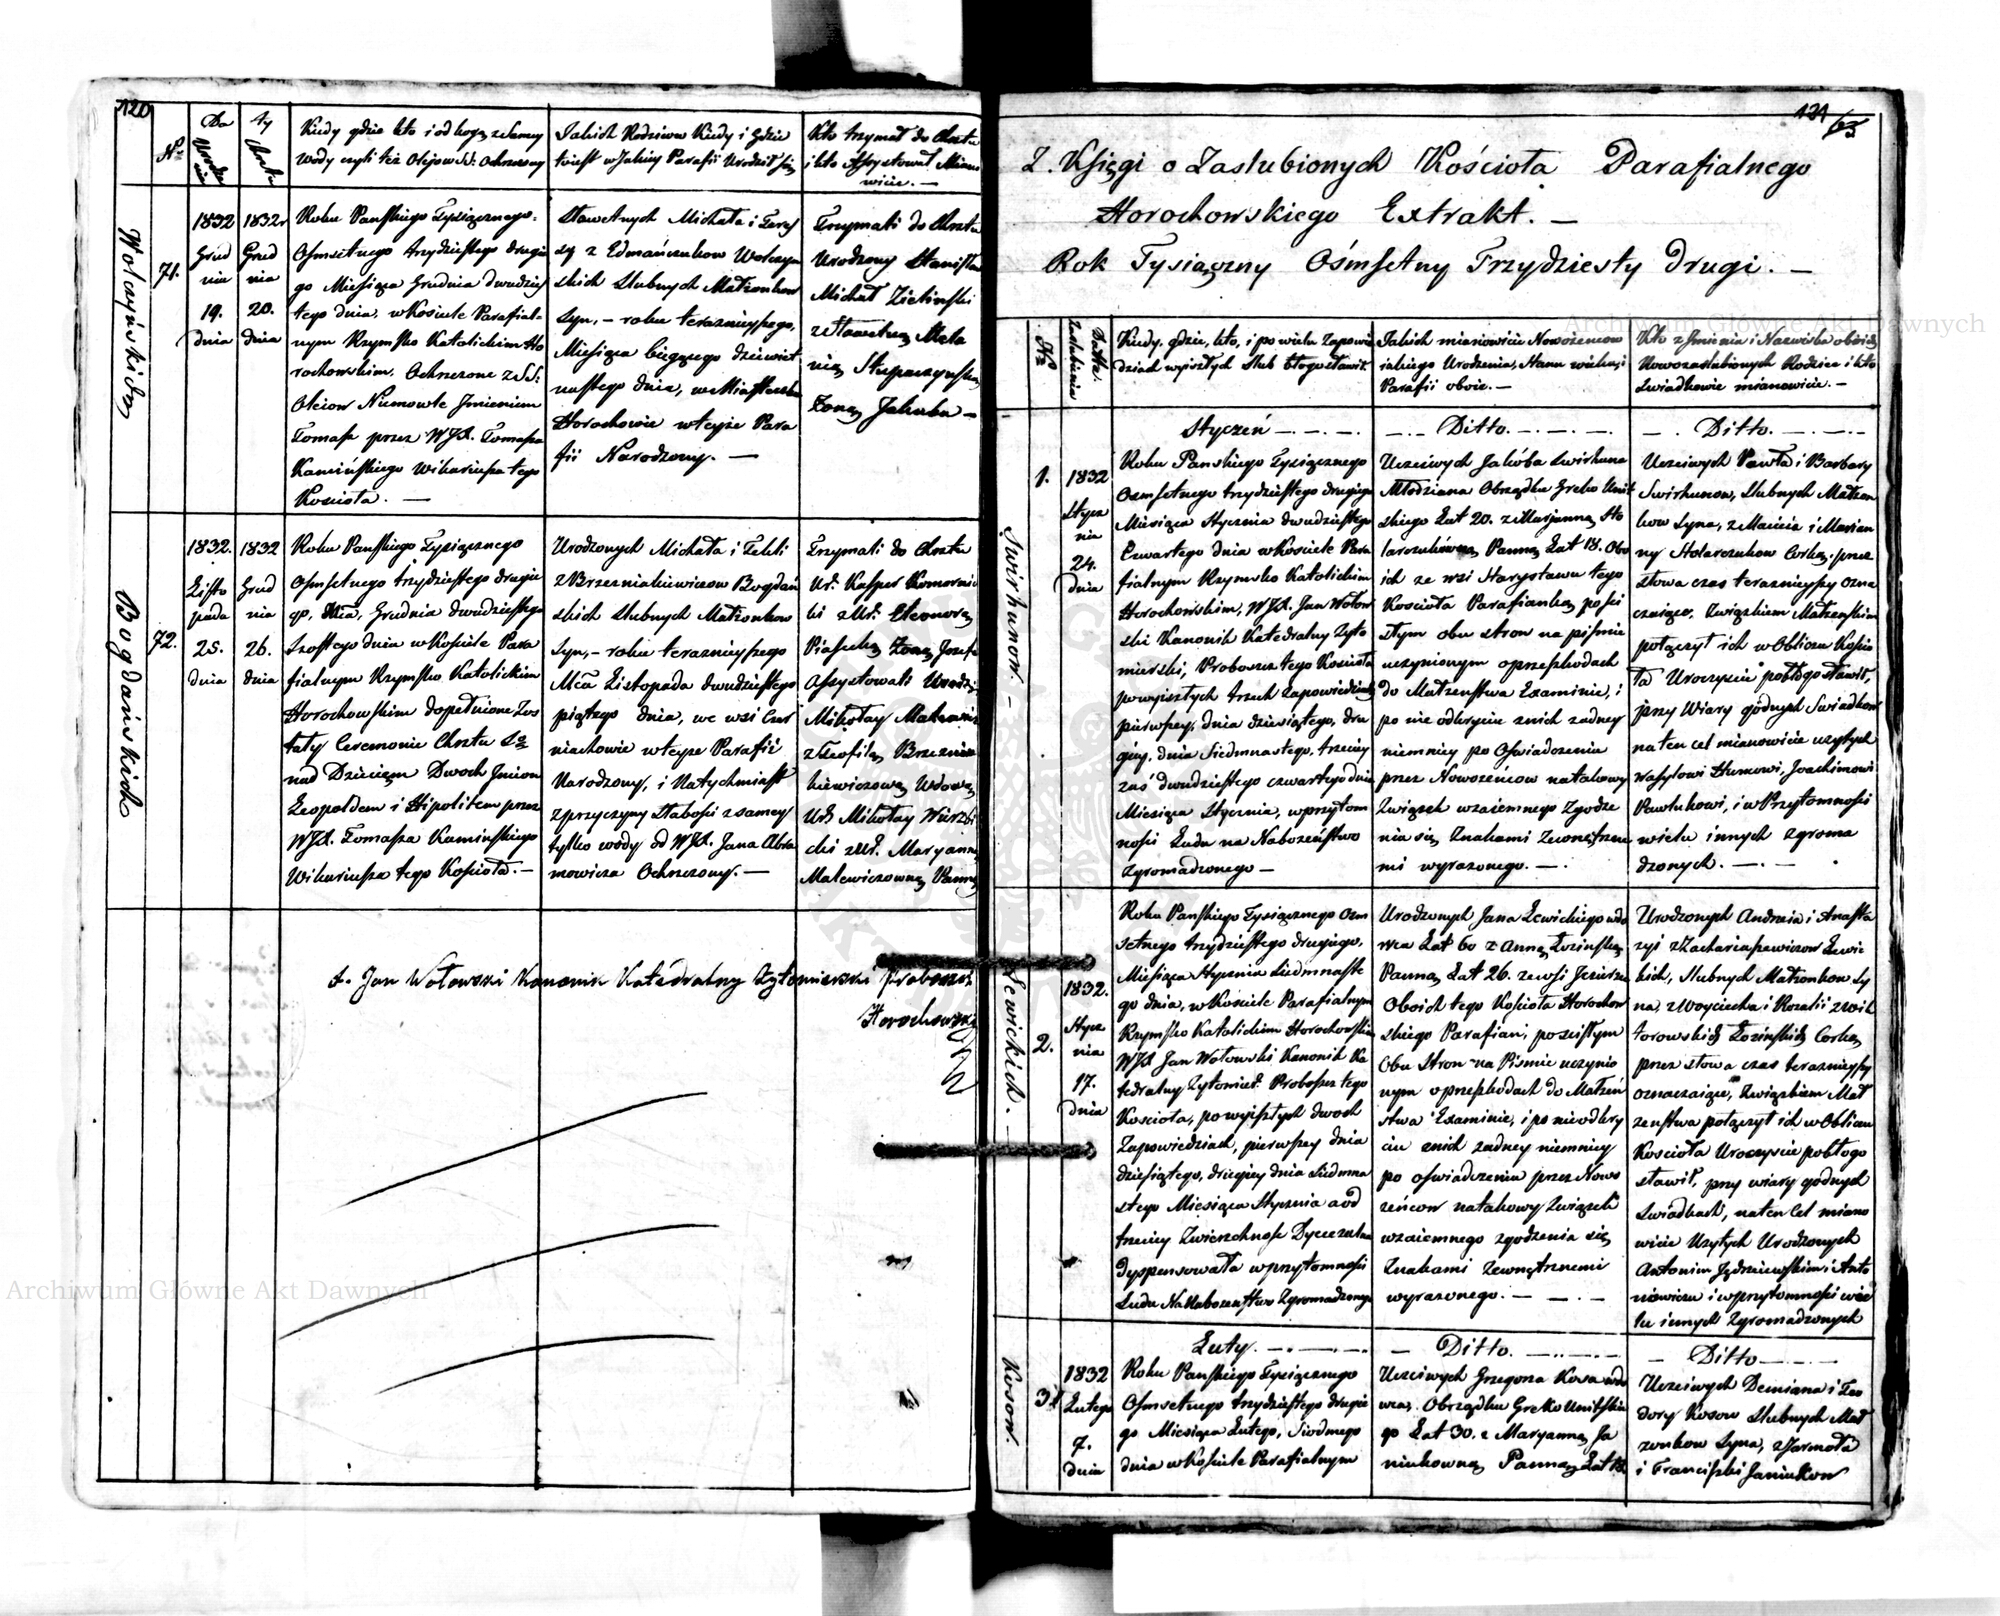 120
Nro
Da
ty
Urodze
nia
Chrztu
Kiedy gdzie kto i od kogo, z Samey
wody czyli też Olejow SS: Ochrzczony
Jakich Rodziców Kiedy i Gdzie
toiest w Jakiey Parafii Urodził się
Kto trzymał do Chrztu
i kto Assystował Miano
wicie. —
Wołczyńskich
71.
1832
Grud
nia
19.
dnia
1832r
Grud
nia
20.
dnia
Roku Pańskiego Tysiącznego
Osmsetnego trzydziestego drugie
go Miesiąca Grudnia dwudzies
tego dnia, w Kościele Parafial-
nym Rzymsko Katolickim Ho
rochowskim. Ochrzczone z SS:
Oleiow Niemowle Jmieniem
Tomasz przez WJX. Tomasza
Kamińskiego Wikariusza tego
Kościoła. —
Sławetnych Michała i Teres
sy z Edmańczukow Wołczyn
skich Slubnych Małżonkow
Syn, — roku teraznieyszego,
Miesiąca bieżącego dziewięt
nastego dnia, w Miasteczku
Horochowie w teyże Para
fii Narodzony. —
Trzymali do Chrztu
Urodzony Stanisław
Michał Zieliński
z Sławetną Mała
nią Słupaczynską
Żoną Jakuba —
Bogdańskich
72.
1832.
Listo
pada
25.
dnia
1832
Grud
nia
26.
dnia
Roku Pańskiego Tysiącznego
Osmsetnego trzydziestego drugie
go, Mca, Grudnia dwudziestego
Szostego dnia w Kościele Para
fialnym Rzymsko Katolickim
Horochowskim dopełnione Zos
tały Ceremonie Chrztu Sgo
nad Dziecięm Dwoch Jmion
Leopoldem i Hipolitem przez
WJX. Tomasza Kaminskiego
Wikariusza tego Kościoła. —
Urodzonych Michała i Tekli
z Brzezniakiewiczow Bogdań
skich Slubnych Małżonkow
Syn, — roku teraznieyszego
Mca Listopada dwudziestego
piątego dnia, we wsi Czer
niachowie w teyze Parafii
Narodzony, i Natychmiast
z przyczyny Słabości z samey
tylko wody od WJX. Jana Abra
mowicza Ochrzczony. —
Trzymali do Chrztu
Ur. Kasper Komornic
ki z Ur. Eleonorą
Piasecką Żoną Jozefa
Assystowali Urodz:
Mikołay Malewicz
z Teofilą Brzeznia
kiewiczową Wdową
Ur. Mikołay Wierzbi
cki z Ur. Maryanną
Malewiczowną Panną
X. Jan Wołowski Kanonik Katedralny Zytomierski Proboszcz
Horochowski
121
65
Z Księgi o Zaslubionych Kościoła Parafialnego
Horochowskiego Extrakt. —
Rok Tysiączny Ośmsetny Trzydziesty Drugi. —
Nro
Datta
Zaslubienia
Kiedy, gdzie, kto, i po wielu Zapowie
dziach wyiszłych slub błogosławił.
Jakich mianowicie Nowożeńcow
iakiego Urodzenia, Stanu wieku, i
Parafii oboie. —
Kto z Jmienia i Nazwiska oboich
Nowozaslubionych Rodzice i kto
Swiadkowie mianowicie. —
Styczeń —.—.—.
—.— Ditto. —.—.—.
—. Ditto. —.—.—
Swirhunow. —
1.
1832
Stycz
nia
24.
dnia
Roku Pańskiego Tysiącznego
Osmsetnego trzydziestego drugiego
Miesiąca Stycznia dwudziestego
Czwartego dnia w Kościele Para
fialnym Rzymsko Katolickim
Horochowskim, WJX. Jan Wołow
ski Kanonik Katedralny Zyto
mierski, Proboszcz tego Kościoła
po wyiszłych trzech Zapowiedziach
pierwszey, dnia dziewiątego, dru
giey, dnia Siedmnastego, trzeciey
zas dwudziestego czwartego dnia
Miesiąca Stycznia, w przytom
nosci Ludu na Nabożeństwo
zgromadzonego —
Uczciwych Jakóba Swirhuna
Młodziana Obrządku Greko Unit
skiego Lat 20. z Marjanną Sto
larczukówną Panną Lat 18. Obo
ich ze wsi Harysławu tego
Kościoła Parafianką, po sci
słym obu stron na piśmie
uczynionym o przeszkodach
do Małżenstwa Examinie, i
po nie odkryciu znich zadney
niemniey po Oswiadczeniu
przez Nowożeńcow natakowy
Związek wzaiemnego Zgodze
nia się Znakami Zewnętrzne
mi wyrazonego. —.—
Uczciwych Pawła i Barbary
Swirhunow, Slubnych Małżon
kow Syna, z Macieia i Marian
ny Stolarczukow Corką, przez
słowa czas teraznieyszy ozna
czaiące, Związkiem Małżeńskim
połączył ich w Obliczu Kościo
ła Uroczyscie pobłogosławił,
przy Wiary godnych Swiadkow
na ten cel mianowicie użytych
Wasylowi Humowi, Joachimowi
Pawlukowi, i w Przytomności
wielu innych zgroma
dzonych. —.—
Lewickich. —
2.
1832.
Stycz
nia
17.
dnia
Roku Pańskiego Tysiącznego Osm
setnego trzydziestego drugiego,
Miesiąca Stycznia Siedmnaste
go dnia, w Kosciele Parafialnym
Rzymsko Katolickim Horochowskim
WJX Jan Wołowski Kanonik Ka
tedralny Zytomier. Proboszcz tego
Kościoła, po wyiszłych dwoch
Zapowiedziach, pierwszey dnia
dziesiątego, drugiey dnia Siedmna
stego Miesiąca Stycznia a od
trzeciey Zwierzchnosc Dyecezalna
Dyspensowała w przytomnosci
Ludu Na Nabozeństwo Zgromadzonego
Urodzonych Jana Lewickiego wdo
wca Lat 60 z Anną Łozińską
Panną Lat 26. ze wsi Jeziorza
Oboich tego Kościoła Horochow
skiego Parafian, po scisłym
Obu Stron na Pismie uczynio
nym o przeszkodach do Małżeń
stwa Examinie, i po nieodkry
ciu znich zadney niemniey
po oswiadczeniu przez Nowo
żeńcow natakowy Związek
wzaiemnego zgodzenia się
Znakami Zewnętrznemi
wyrazonego. — —.—
Urodzonych Andrzeia i Anasta
zyi z Zachariasiewiczow Lewic
kich, Slubnych Małżonkow Sy
na, z Woyciecha i Rozalii z Wik
torowskich Łozińskich Corką
przez słowa czas teraznieyszy
oznaczaiące, Związkiem Mał
żenstwa połączył ich w Obliczu
Kościoła Uroczyscie pobłogo
sławił, przy wiary godnych
Swiadkach, na ten Cel miano
wicie Uzytych Urodzonych
Antonim Jędrzieiewskim i Anto
niewiczu i w przytomności wie
lu innych Zgromadzonych
Luty. —.—.—
— Ditto. —.—.—
— Ditto —.—.—
Kosow.
3.
1832
Lutego
7.
dnia
Roku Pańskiego Tysiącznego
Osmsetnego trzydziestego drugie
go Miesiąca Lutego, Siodmego
dnia w Kosciele Parafialnym
Uczciwych Grzegorza Kosa wdo
wca, Obrządku Greko Unitskie
go Lat 30. z Maryanną Ja
niukowną Panną Lat 18.
Uczciwych Demiana i Teo
dory Kosow Slubnych Mał
zonkow Syna, z Jarmoła
i Franciszki Janiukow
Archiwum Główne Akt Dawnych
Archiwum Główne Akt Dawnych